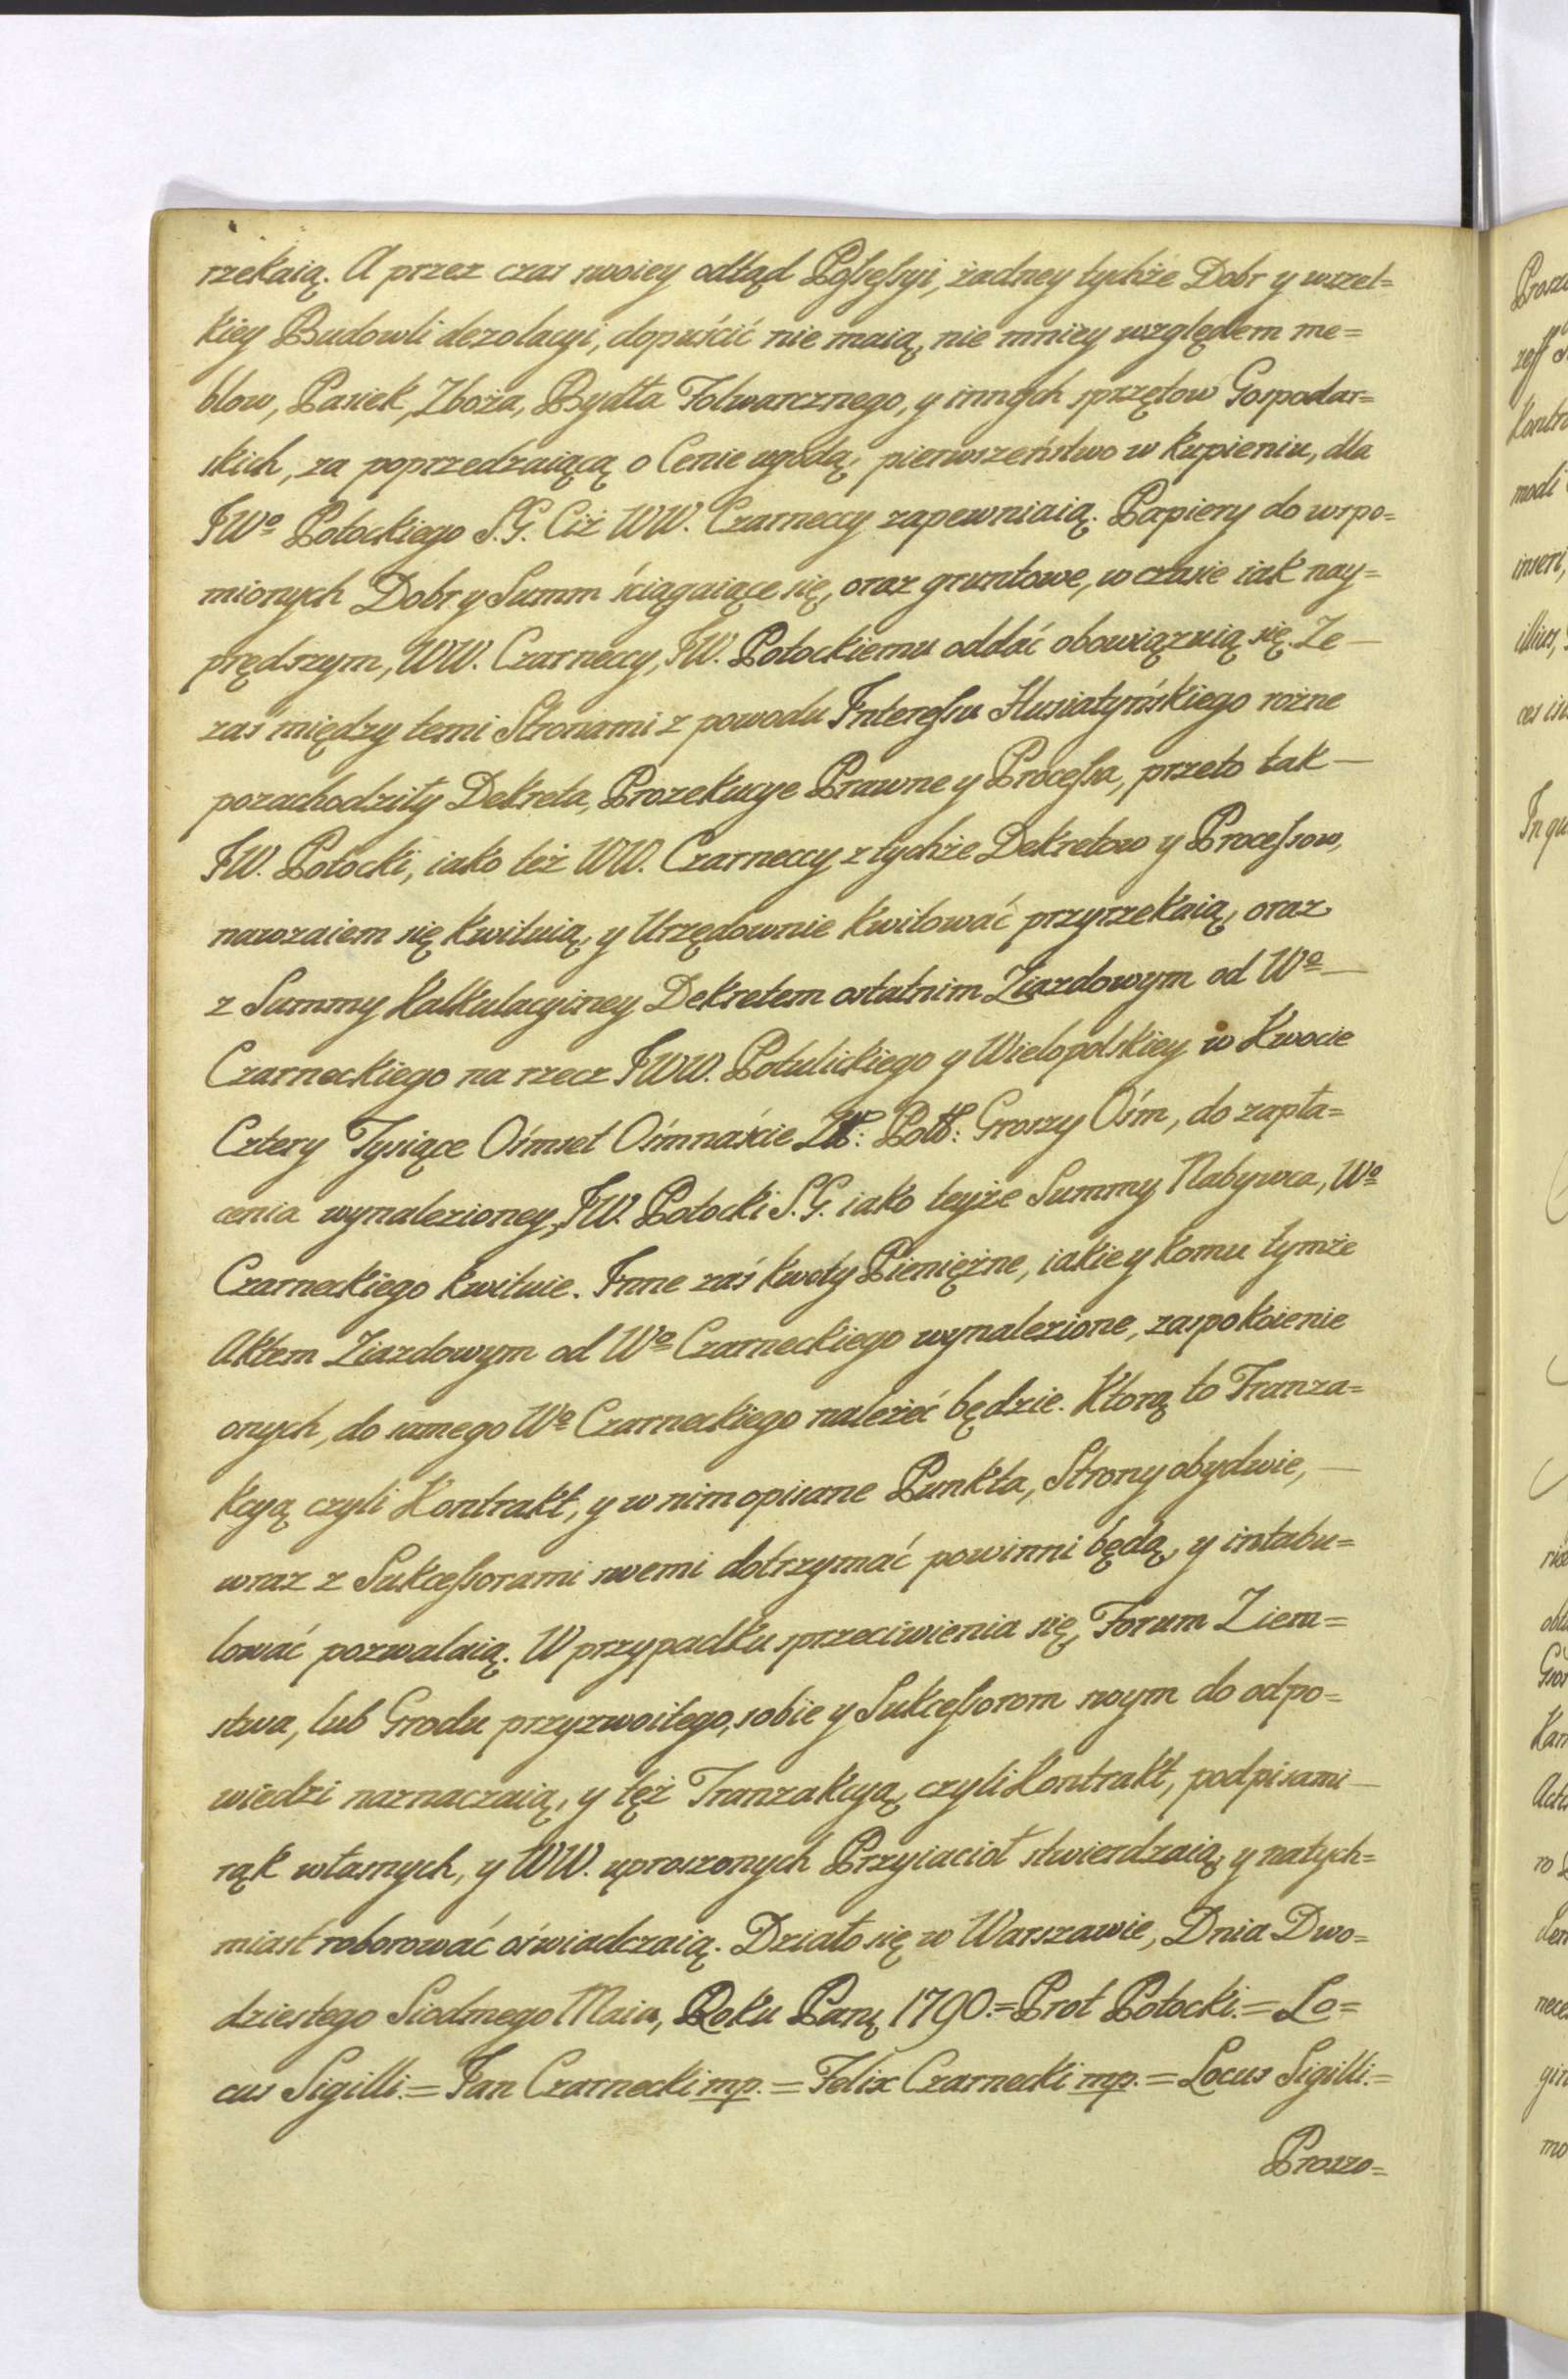 rzekaią. A przez czas swoiey odtąd Possęssyi, żadney tychże Dobr y wszel=
kiey Budowli dezolacyi, dopuścić nie maią, nie mniey względem me=
blow, Pasiek, Zboża, Bydła Folwarcznego, y innych sprzętow Gospodar=
skich, za poprzedzaiącą o Cenie ugodą, pierwszeństwo w kupieniu, dla
JWo Potockiego S.G. Ciż WW. Czarneccy zapewniaią. Papiery do wspo=
mionych Dobr y Summ ściągaiące się, oraz gruntowe, w czasie iak nay=
prędszym, WW. Czarneccy, JW. Potockiemu oddać obowiązuią się. Ze —
zas między temi Stronami z powodu Interessu Husiatyńskiego rożne
pozachodziły Dekreta, Prozekucye Prawne y Processa, przeto tak —
JW. Potocki, iako też WW. Czarneccy z tychże Dekretow y Processow,
nawzaiem się kwituią, y Urzędownie kwitować przyrzekaią, oraz
z Summy Kalkulacyiney Dekretem ostatnim Ziazdowym od Wo —
Czarneckiego na rzecz JWW. Potulickiego y Wielopolskiey w Kwocie
Cztery Tysiące Ośmset Ośmnaście Zł: Poll: Groszy Ośm, do zapła=
cenia wynalezioney, JW. Potocki S.G. iako teyże Summy Nabywca, Wo
Czarneckiego kwituie. Inne zaś kwoty Pieniężne, iakie y komu tymże
Aktem Ziazdowym od Wo Czarneckiego wynalezione, zaspokoienie
onych, do samego Wo Czarneckiego należeć będzie. Ktorą to Tranza=
kcyą czyli Kontrakt, y w nim opisane Punkta, Strony obydwie, —
wraz z Sukcessorami swemi dotrzymać powinni będą, y intabu=
lować pozwalaią. W przypadku sprzeciwienia się, Forum Ziem=
stwa, lub Grodu przyzwoitego, sobie y Sukcessorom swym do odpo=
wiedzi naznaczaią, y tęż Tranzakcyą, czyli Kontrakt, podpisami —
rąk własnych, y WW. uproszonych Przyiacioł stwierdzaią, y natych=
miast roborować oświadczaią. Działo się w Warszawie, Dnia Dwo=
dziestego Siodmego Maia, Roku Panų 1790.= Prot Potocki.= Lo=
cus Sigilli.= Jan Czarnecki mp. = Felix Czarnecki mp. = Locus Sigilli.=
Proszo=